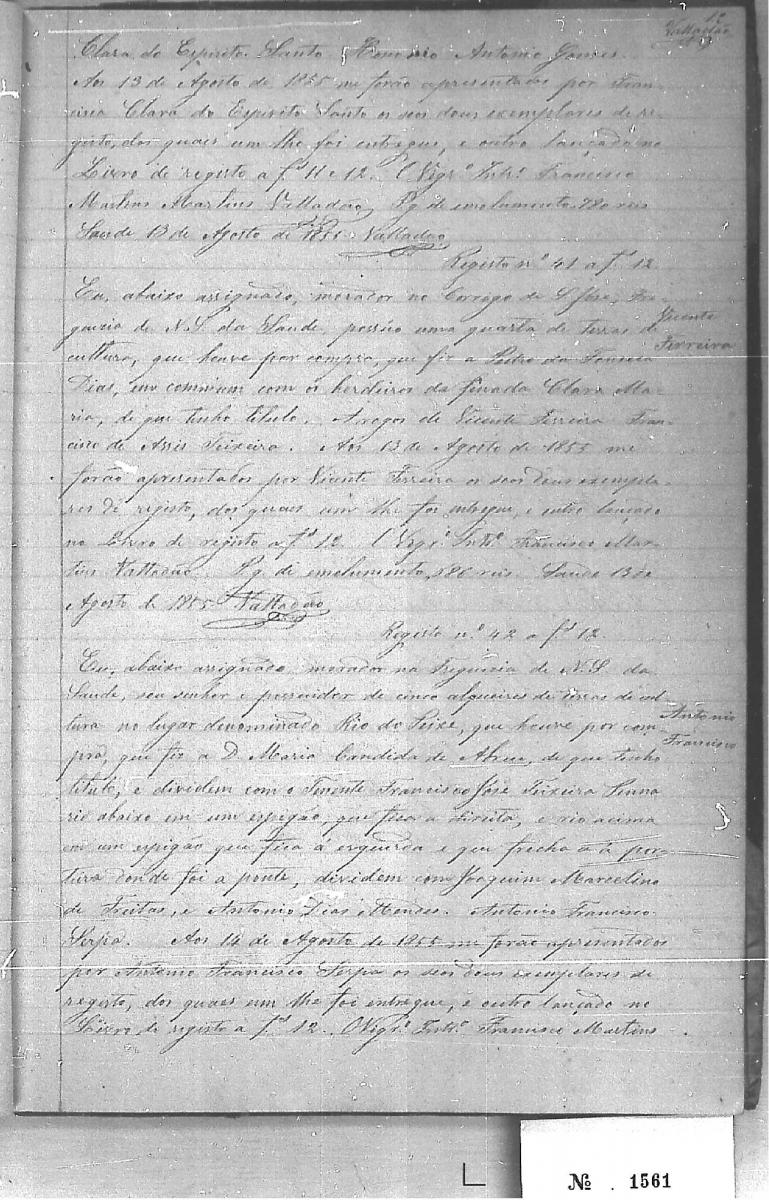 12
Valladão
Clara do Espirito Santo Antonio Gomes.
Aos 13 de Agosto de 1855 me forão apresentados por Fran-
cisca Clara do Espirito Santo os seos dous exemplares de re-
gisto, dos quaes um lhe foi entregue, e outro lançado no
Livro de registo a fs 11 e 12. O Vigrº Francisco
Martins Martins Valladão Pg. de emolumento 780 reis
Saude 13 de Agosto de 1855 Valladão
Registo nº 41 a fs 12
Eu, abaixo assignado, morador no Corrego de S. José, Fre-
guezia de N. S. da Saude, possúo uma quarta de terras de
Vicente
Ferreira
cultura, que houve por compra, que fiz a Pedro da Fonseca
Dias, em commum com os herdeiros da finada Clara Ma-
ria, de que tenho titulo. A rogos de Vicente Ferreira Fran-
cisco de Assis Teixeira. Aos 13 de Agosto de 1855 me
forão apresentados por Vicente Ferreira os seos dous exempla-
res de registo, dos quaes um lhe foi entregue, e outro lançado
no Livro de registo a fs 12. O Vigrº Francisco Mar-
tins Valladão. Pg. de emolumento, reis. Saude 13 de
Agosto de 1855 Valladão
Registo nº 42 a fs 12.
Eu, abaixo assignado, morador na Freguezia de N. S. da
Saude, sou senhor e possuidor de cinco alqueires de terras de cul-
tura no lugar denominado Rio do Peixe, que houve por com-
Antonio
Francisco
pra, que fiz a D. Maria Candida de Abreu, de que tenho
titulo, e dividem com o Tenente Francisco José Teixeira Penna
rio abaixo em um espigão, que fica a direita, e rio acima
em um espigão que fica á esquerda e que frecha
donde foi a ponte, dividem com Joaquim Marcelino
de Freitas, e Antonio Dias Mendes. Antonio Francisco
Serpa. Aos 14 de Agosto de 1855 me forão apresentados
por Antonio Francisco Serpa os seos dous exemplares de
registo, dos quaes um lhe foi entregue, e outro lançado no
Livro de registo a fs 12. O Vigrº Francisco Martins
Nº . 1561